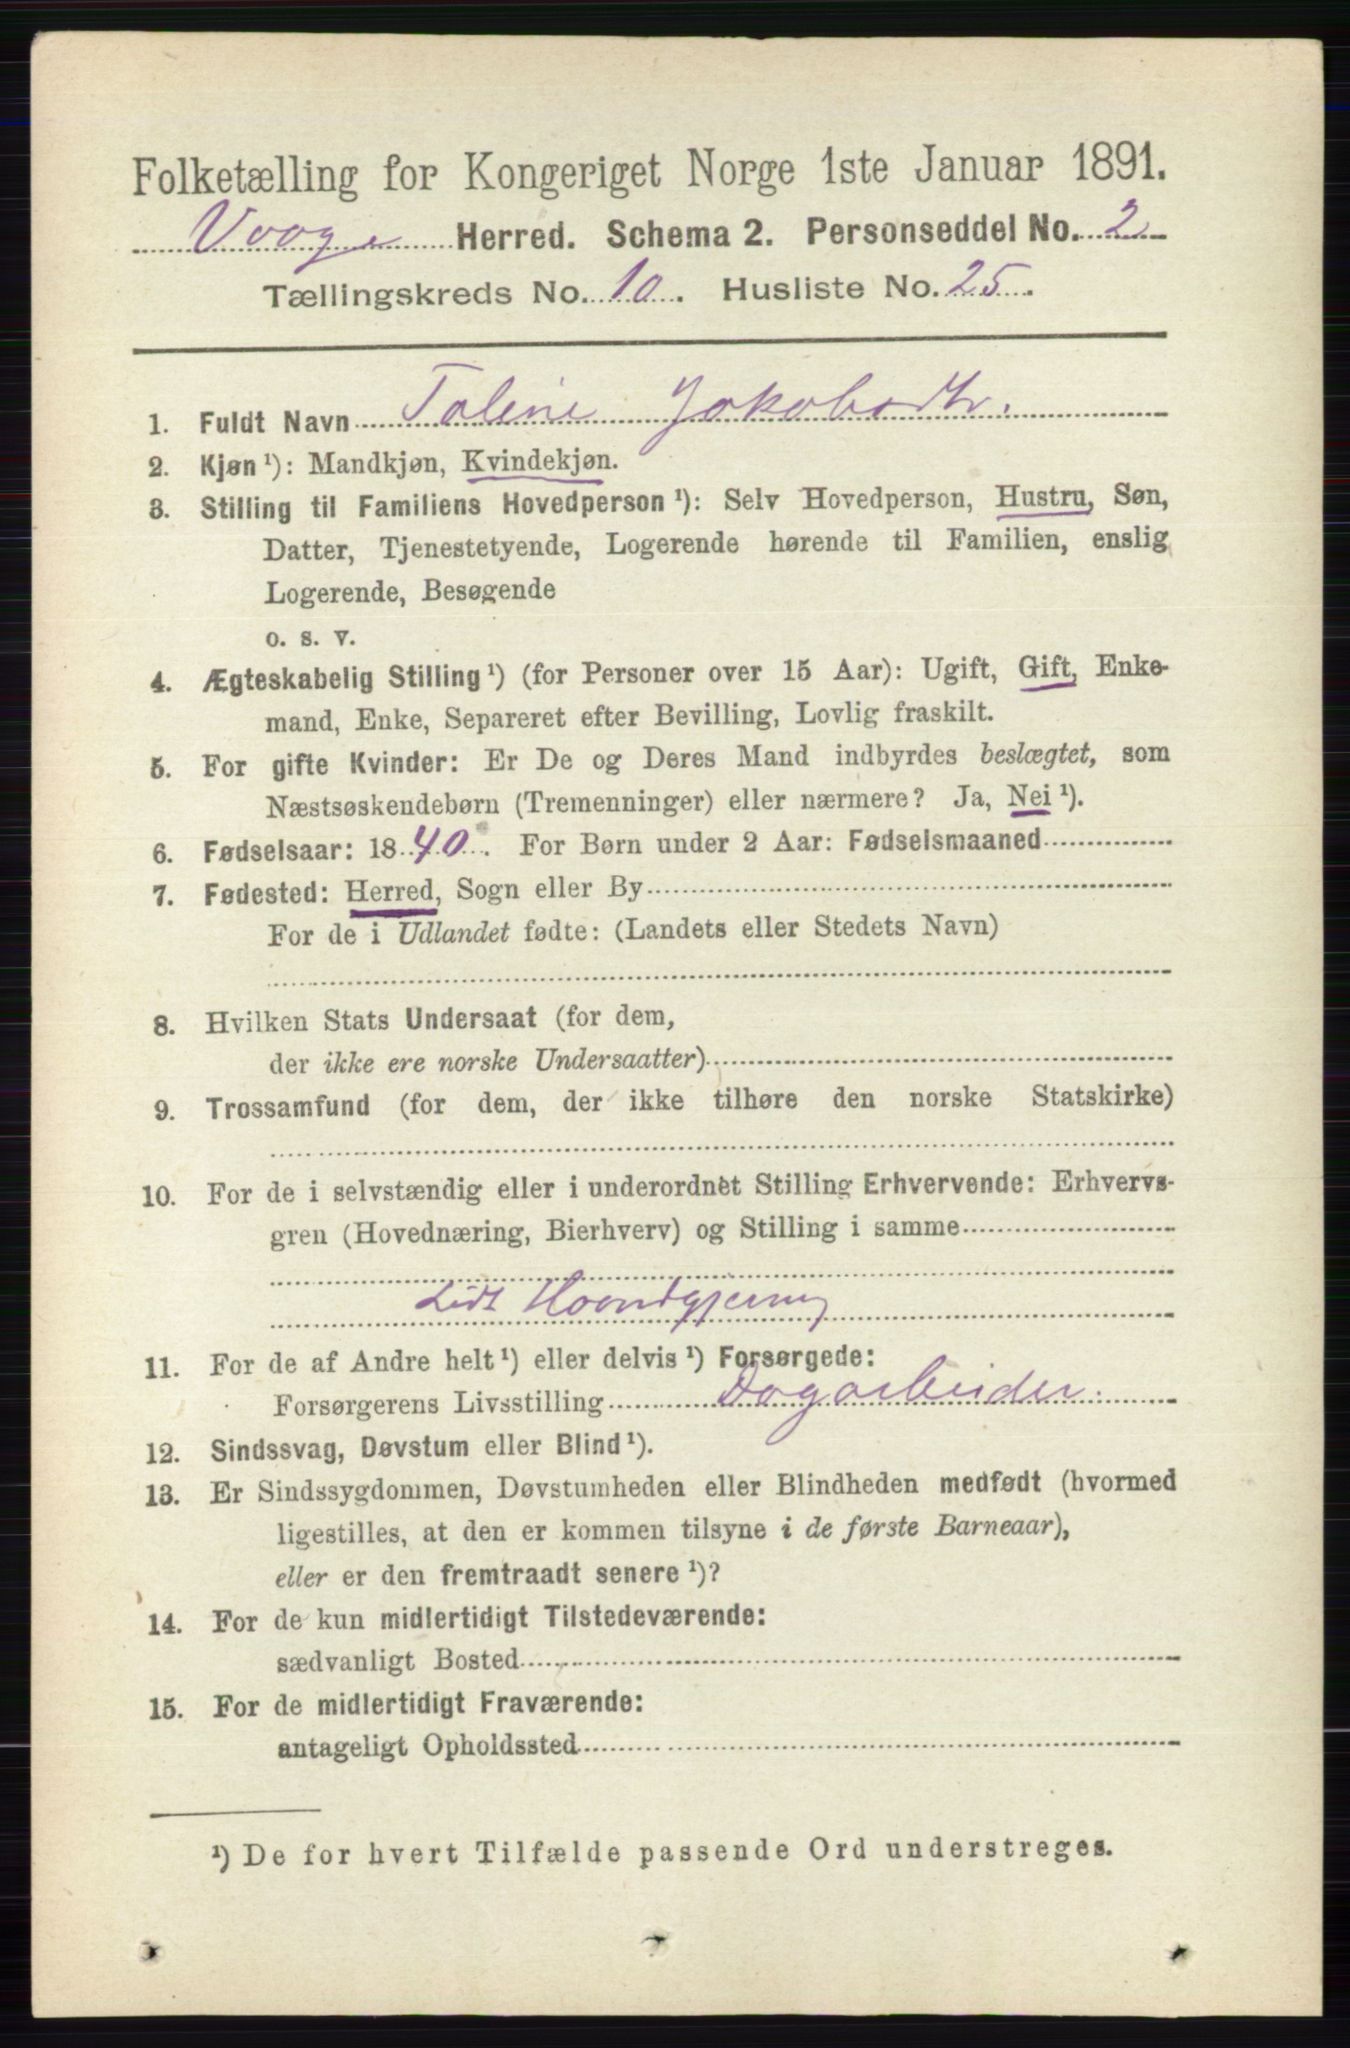 Folketælling for Kongeriget Norge 1ste Januar 1891.
Vaage Herred. Schema 2. Personseddel No. 2
Tællingskreds No. 10. Husliste No. 25.
1. Fuldt Navn Taline Jakobsdtr.
2. Kjøn ¹): Mandkjøn, Kvindekjøn.
3. Stilling til Familiens Hovedperson ¹): Selv Hovedperson, Hustru, Søn,
Datter, Tjenestetyende, Logerende hørende til Familien, enslig
Logerende, Besøgende
o. s. v.
4. Ægteskabelig Stilling ¹) (for Personer over 15 Aar): Ugift, Gift, Enke-
mand, Enke, Separeret efter Bevilling, Lovlig fraskilt.
5. For gifte Kvinder: Er De og Deres Mand indbyrdes beslægtet, som
Næstsøskendebørn (Tremenninger) eller nærmere? Ja, Nei ¹).
6. Fødselsaar: 1840. For Børn under 2 Aar: Fødselsmaaned
7. Fødested: Herred, Sogn eller By
For de i Udlandet fødte: (Landets eller Stedets Navn)
8. Hvilken Stats Undersaat (for dem,
der ikke ere norske Undersaatter)
9. Trossamfund (for dem, der ikke tilhøre den norske Statskirke)
10. For de i selvstændig eller i underordnet Stilling Erhvervende: Erhvervs-
gren (Hovednæring, Bierhverv) og Stilling i samme
Lidt Haandgjerning
11. For de af Andre helt ¹) eller delvis ¹) Forsørgede:
Forsørgerens Livsstilling Dagarbeider.
12. Sindssvag, Døvstum eller Blind ¹).
13. Er Sindssygdommen, Døvstumheden eller Blindheden medfødt (hvormed
ligestilles, at den er kommen tilsyne i de første Barneaar),
eller er den fremtraadt senere ¹)?
14. For de kun midlertidigt Tilstedeværende:
sædvanligt Bosted
15. For de midlertidigt Fraværende:
antageligt Opholdssted
¹) De for hvert Tilfælde passende Ord understreges.